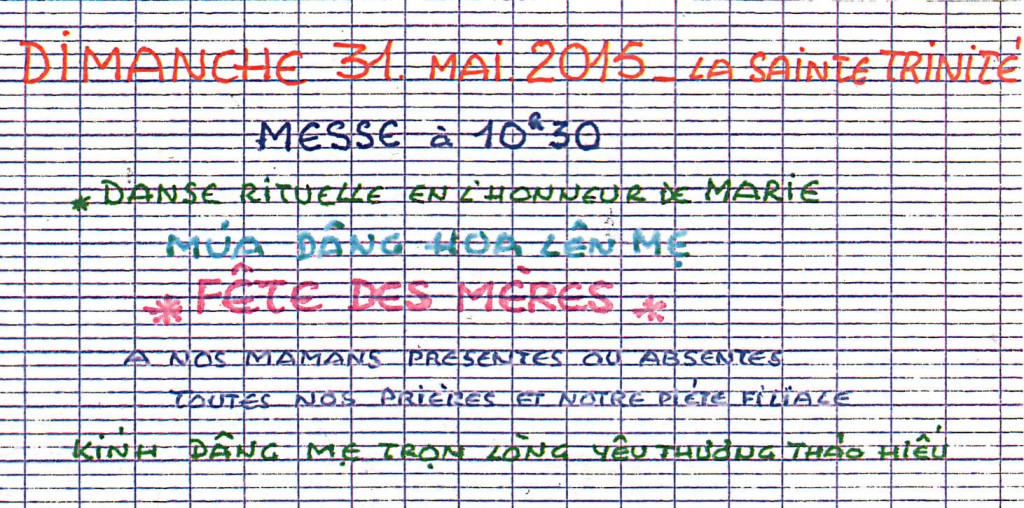 DIMANCHE 31. MAI. 2015_ LA SAINTE TRINITÉ
MESSE à 10h30
* DANSE RITUELLE EN L'HONNEUR DE MARIE
MÚA DÂNG HOA LÊN MẸ
* FÊTE DES MÈRES *
A NOS MAMANS PRESENTES OU ABSENTES
TOUTES NOS PRIÈRES ET NOTRE PIÉTÉ FILIALE
KÍNH DÂNG MẸ TRỌN LÒNG YÊU THƯƠNG THẢO HIẾU